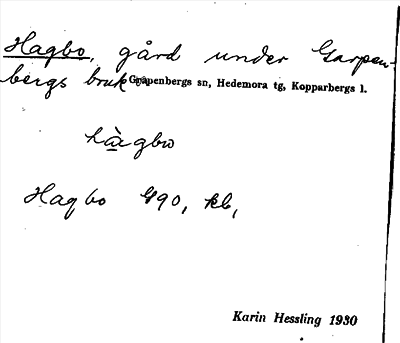 Hagbo, gård under Garpen-
bergs bruk Garpenbergs sn, Hedemora tg, Kopparbergs l.
hàgbω
Hagbo 1790, kb,
Karin Hessling 1930